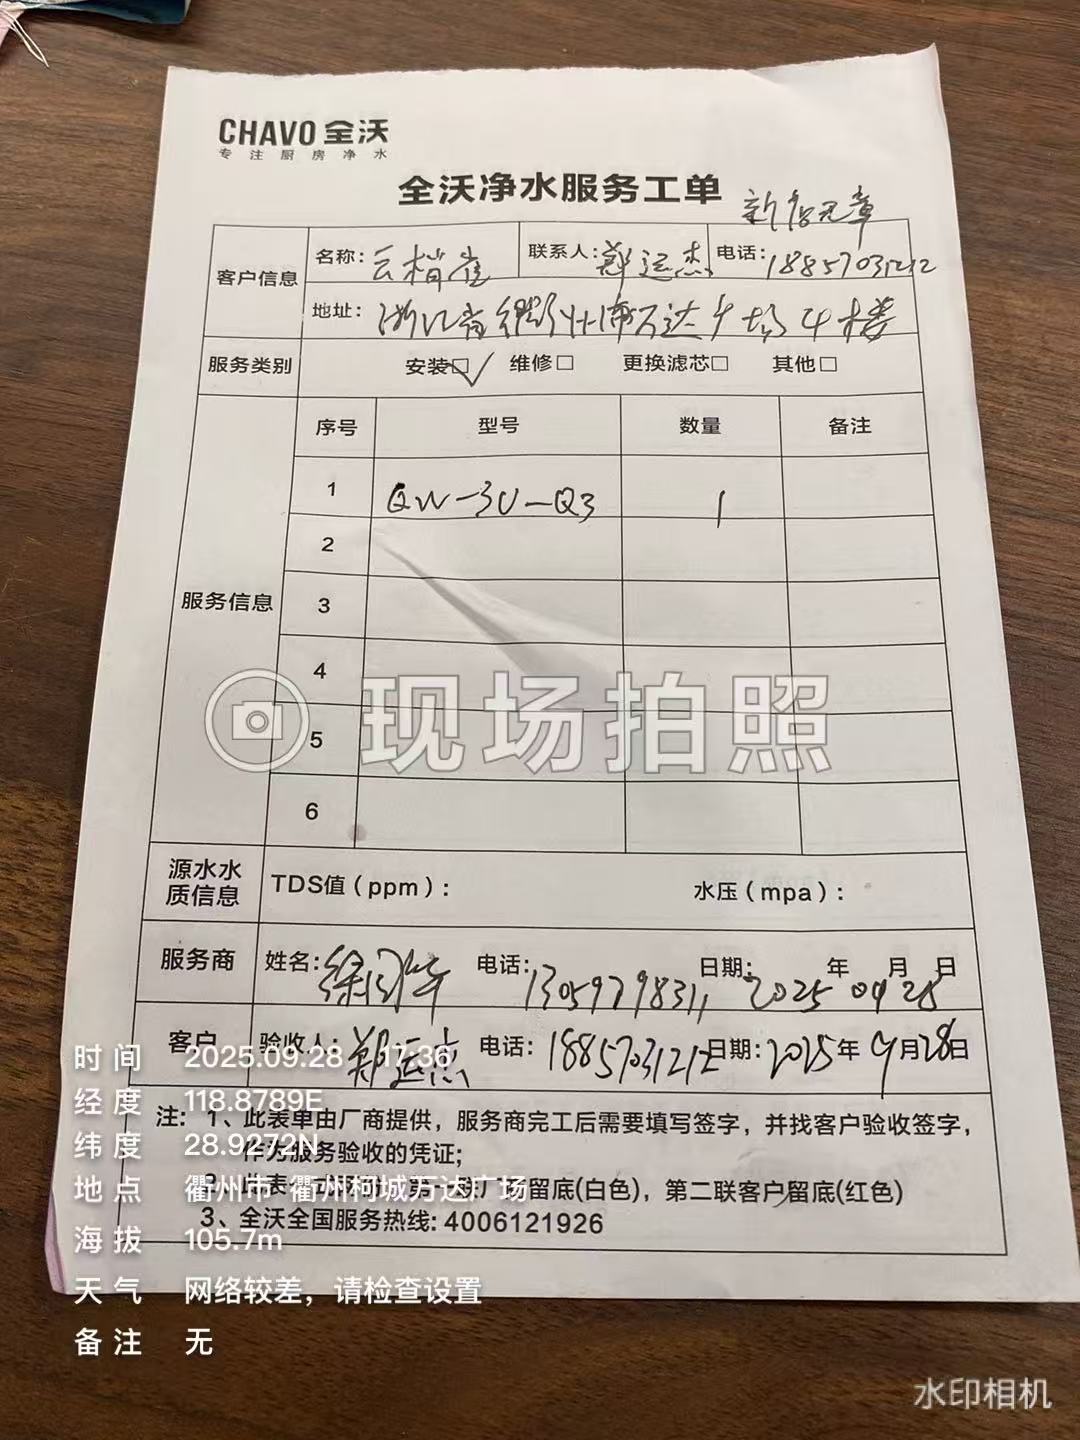 CHAVO 全沃
专注厨房净水
全沃净水服务工单
客户信息 名称：云梢雀 联系人：郑运杰 电话：18857031212
地址：浙江省衢州市万达广场4楼
服务类别 安装☑ 维修□ 更换滤芯□ 其他□
服务信息 序号 型号 数量 备注
1 QW-3U-Q3 1
2
3
4
5
6
现场拍照
源水水质信息 TDS值（ppm）： 水压（mpa）：
服务商 姓名： 电话：13059798311 日期：2025年09月28日
客户 验收人：郑运杰 电话：18857031212 日期：2025年9月28日
注：1、此表单由厂商提供，服务商完工后需要填写签字，并找客户验收签字，
作为服务验收的凭证；
第一联厂场留底(白色)，第二联客户留底(红色)
3、全沃全国服务热线：4006121926
时间 2025.09.28 17:36
经度 118.8789E
纬度 28.9272N
地点 衢州市·衢州柯城万达广场
海拔 105.7m
天气 网络较差，请检查设置
备注 无
水印相机